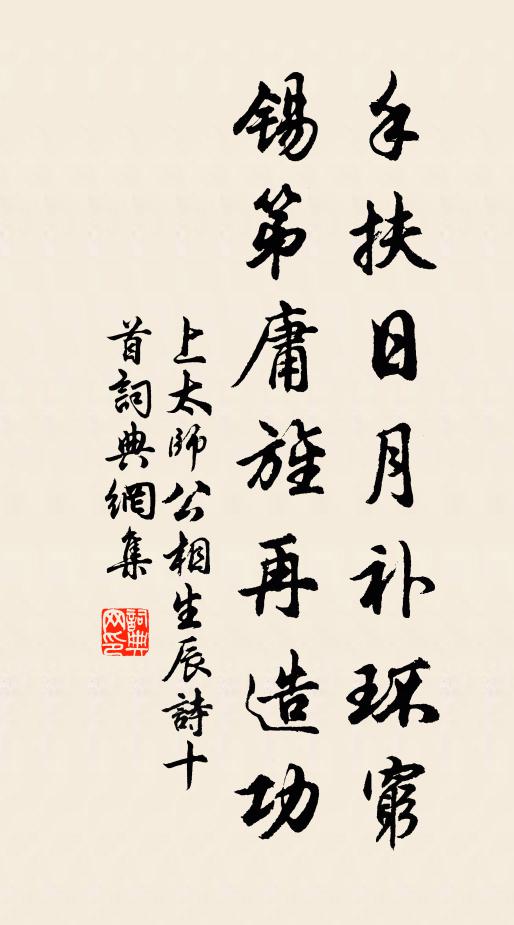 手扶日月补环穹
锡第庸旌再造功
上太師公相生辰詩十
首詞典網集
詞典
网印